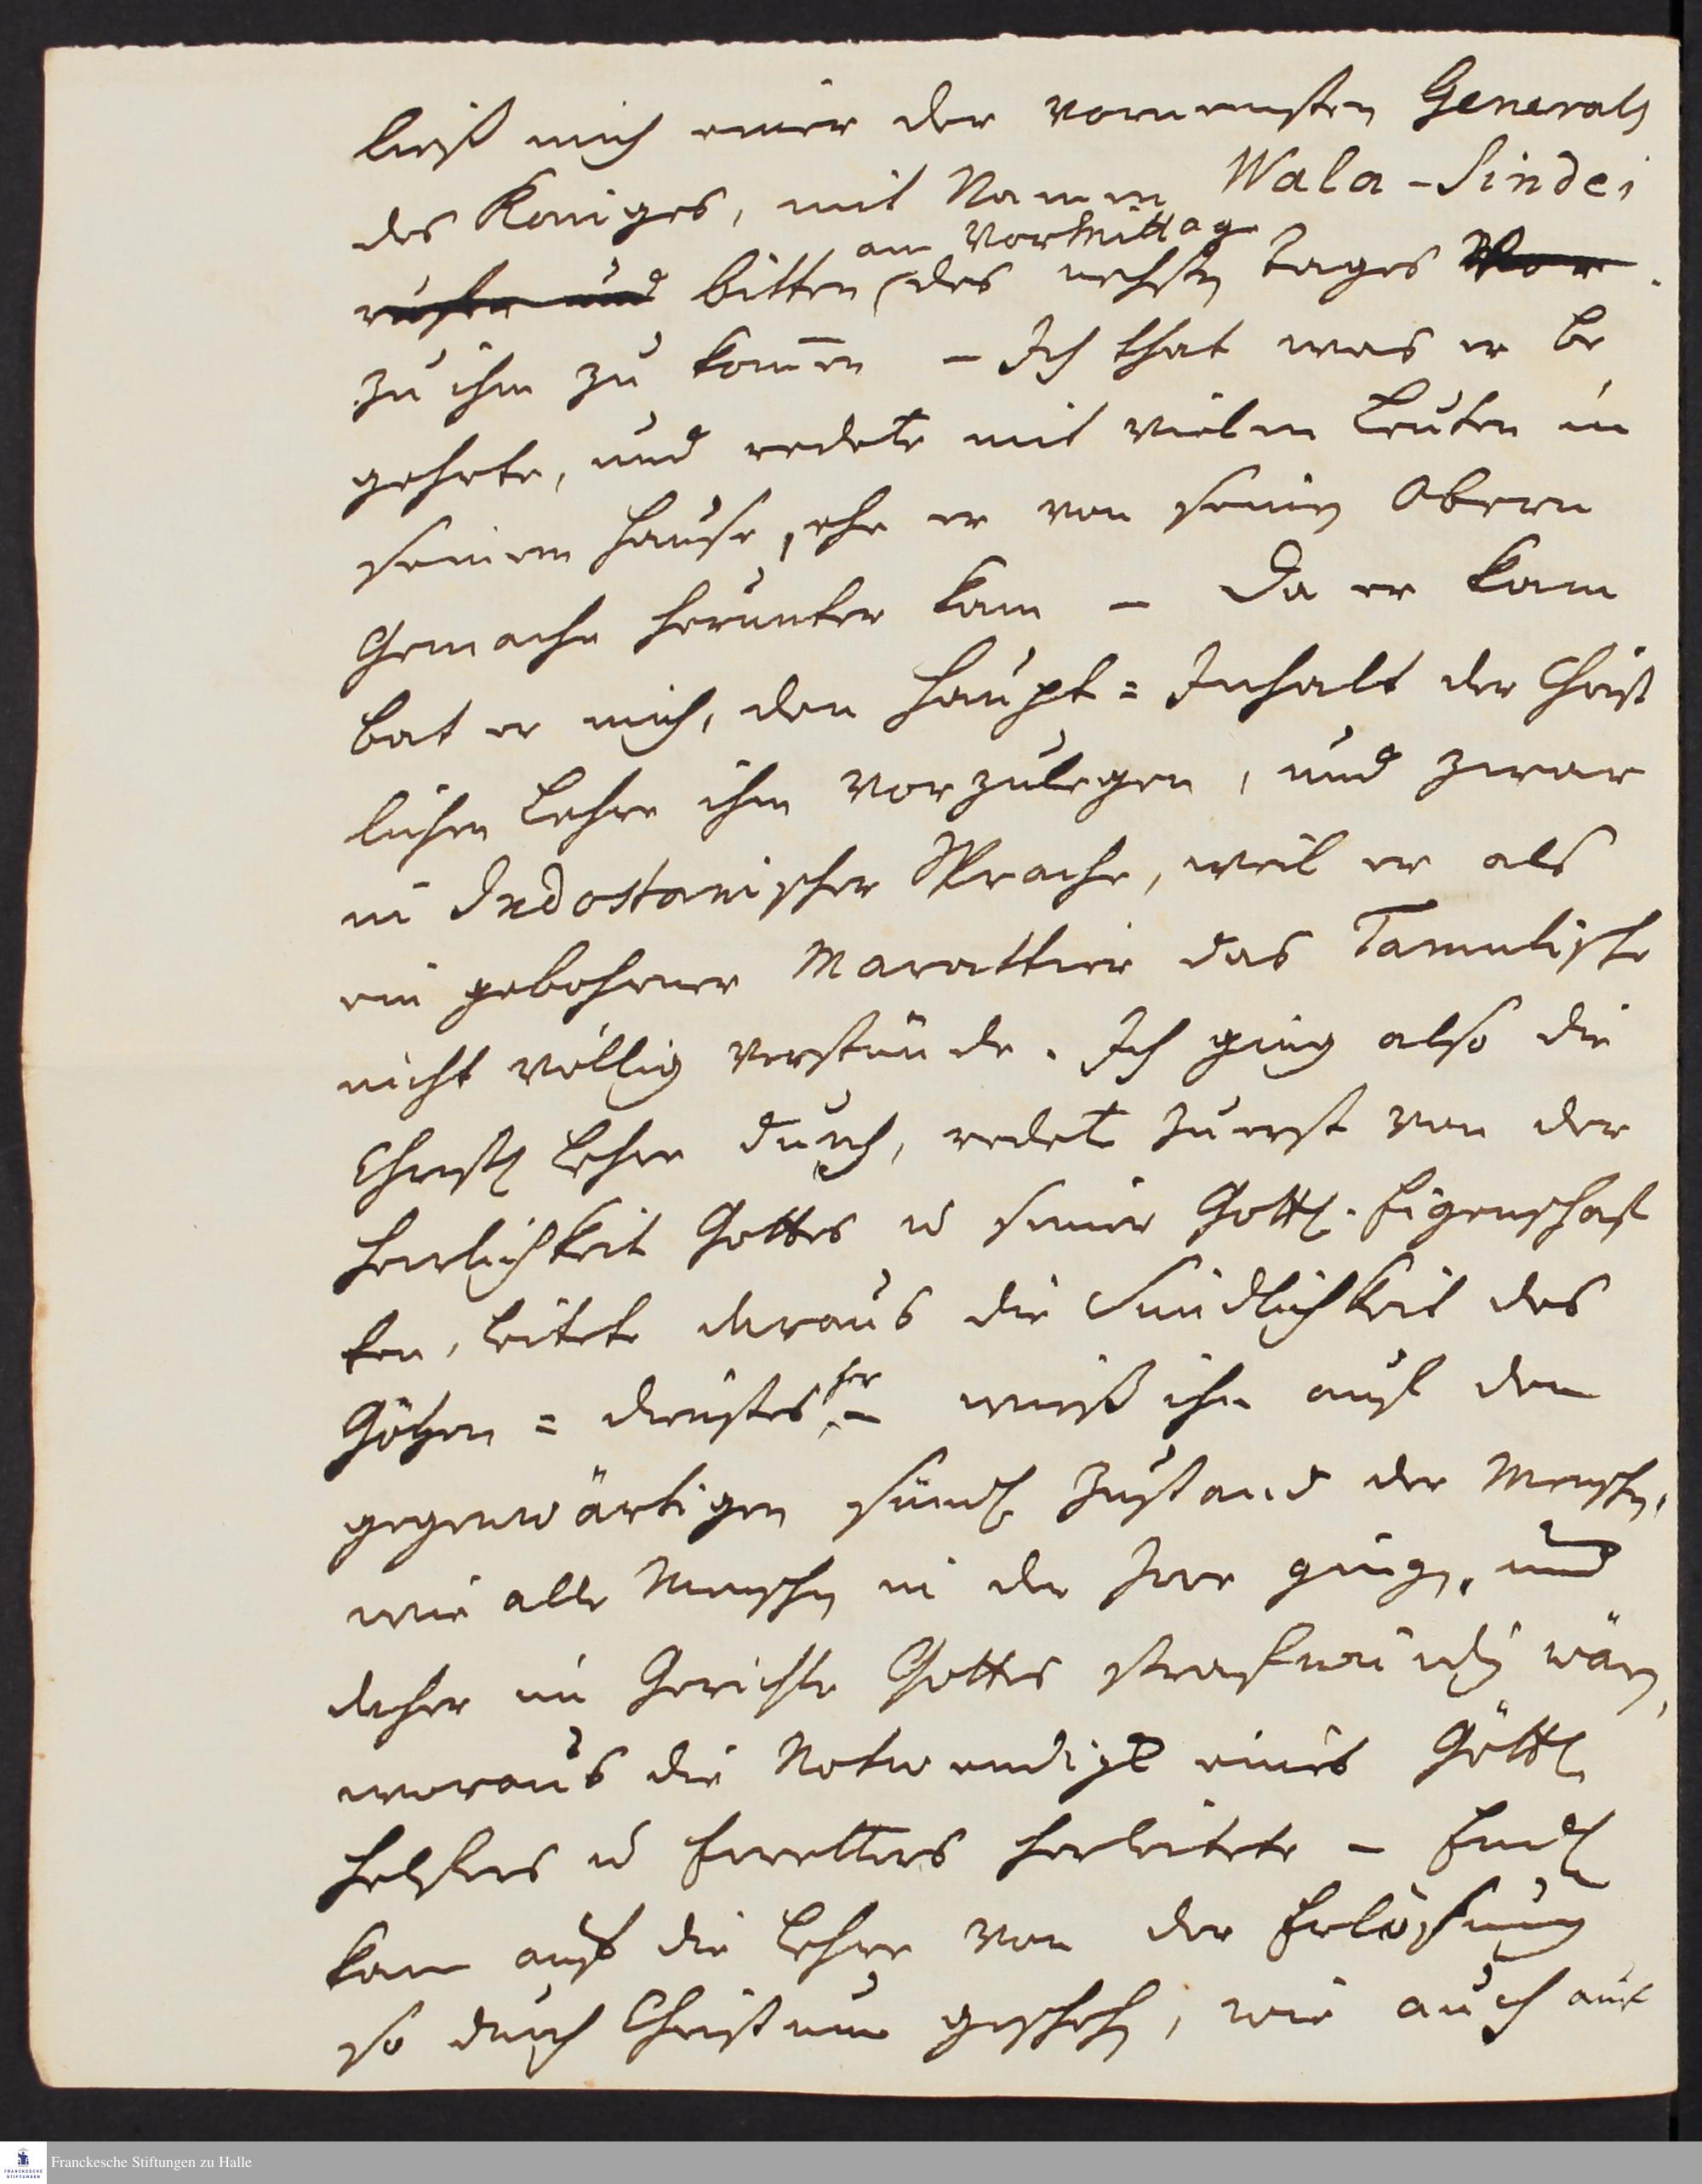 ließ mich einer der vornemsten Generals
des Königes, mit Namen Wala-Sindei
am Vormittage
rufen und bitten des nechsten Tages Vor
zu ihm zu kom̅en – Ich that was er be
gehrte, und redete mit vielen Leuten in
seinem Hause, ehe er von seinen Obern
Gemache herunter kam – Da er kam
bat er mich, den Haupt=Inhalt der Christ
lichen Lehre ihm vorzulegen, und zwar
in Indostanischer Sprache, weil er als
ein gebohrner Marattier das Tamulische
nicht völlig verstünde. Ich ging also die
Christl Lehre durch, redete zuerst von der
Herrlichkeit Gottes u seiner Göttl. Eigenschaf
ten, leitete daraus die Sündlichkeit des
Götzen=dienstes her – wieß ihn auf den
gegenwärtigen sündl Zustand der Menschen,
wie alle Menschen in der Irre gingen, und
daher im Gerichte Gottes strafwürdig wären,
woraus die Notwendigk eines Göttl
Helfers u Erretters herleitete – Endl
kam auf die Lehre von der Erlösung
so durch Christum geschehen, wie auch auf
Franckesche Stiftungen zu Halle